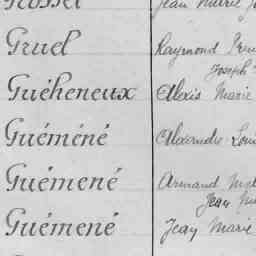 Jean Marie
Gruel Raymond
Joseph
Guéheneux Alexis Marie
Guéméné Alexandre Loui
Guémené Armand
Jean
Guémené Jean Marie